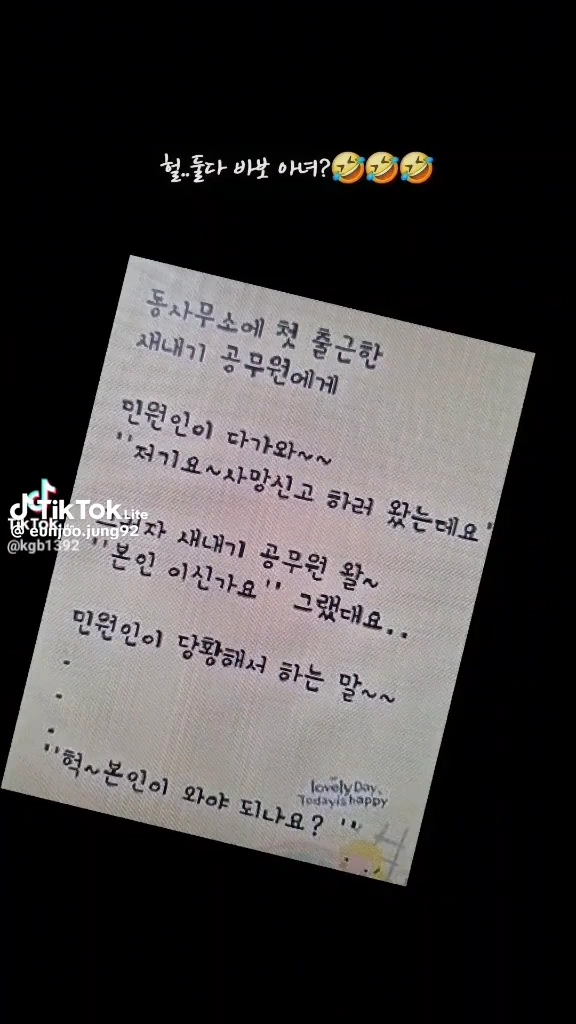 헐..둘다 바보 아녀?🤣🤣🤣
동사무소에 첫 출근한
새내기 공무원에게
민원인이 다가와~~
"저기요~사망신고 하러 왔는데요"
TikTok Lite
@eunjoo.jung92
TikTok
@kgb1392
자 새내기 공무원 왈~
"본인 이신가요" 그랬대요..
민원인이 당황해서 하는 말~~
.
.
.
"헉~본인이 와야 되나요? "
lovely Day,
Today is happy